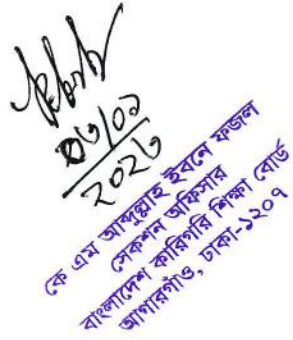 ০৬/০১
২০২৬
কে এম আব্দুল্লাহ ইবনে ফজল
সেকশন অফিসার
বাংলাদেশ কারিগরি শিক্ষা বোর্ড
আগারগাঁও, ঢাকা-১২০৭